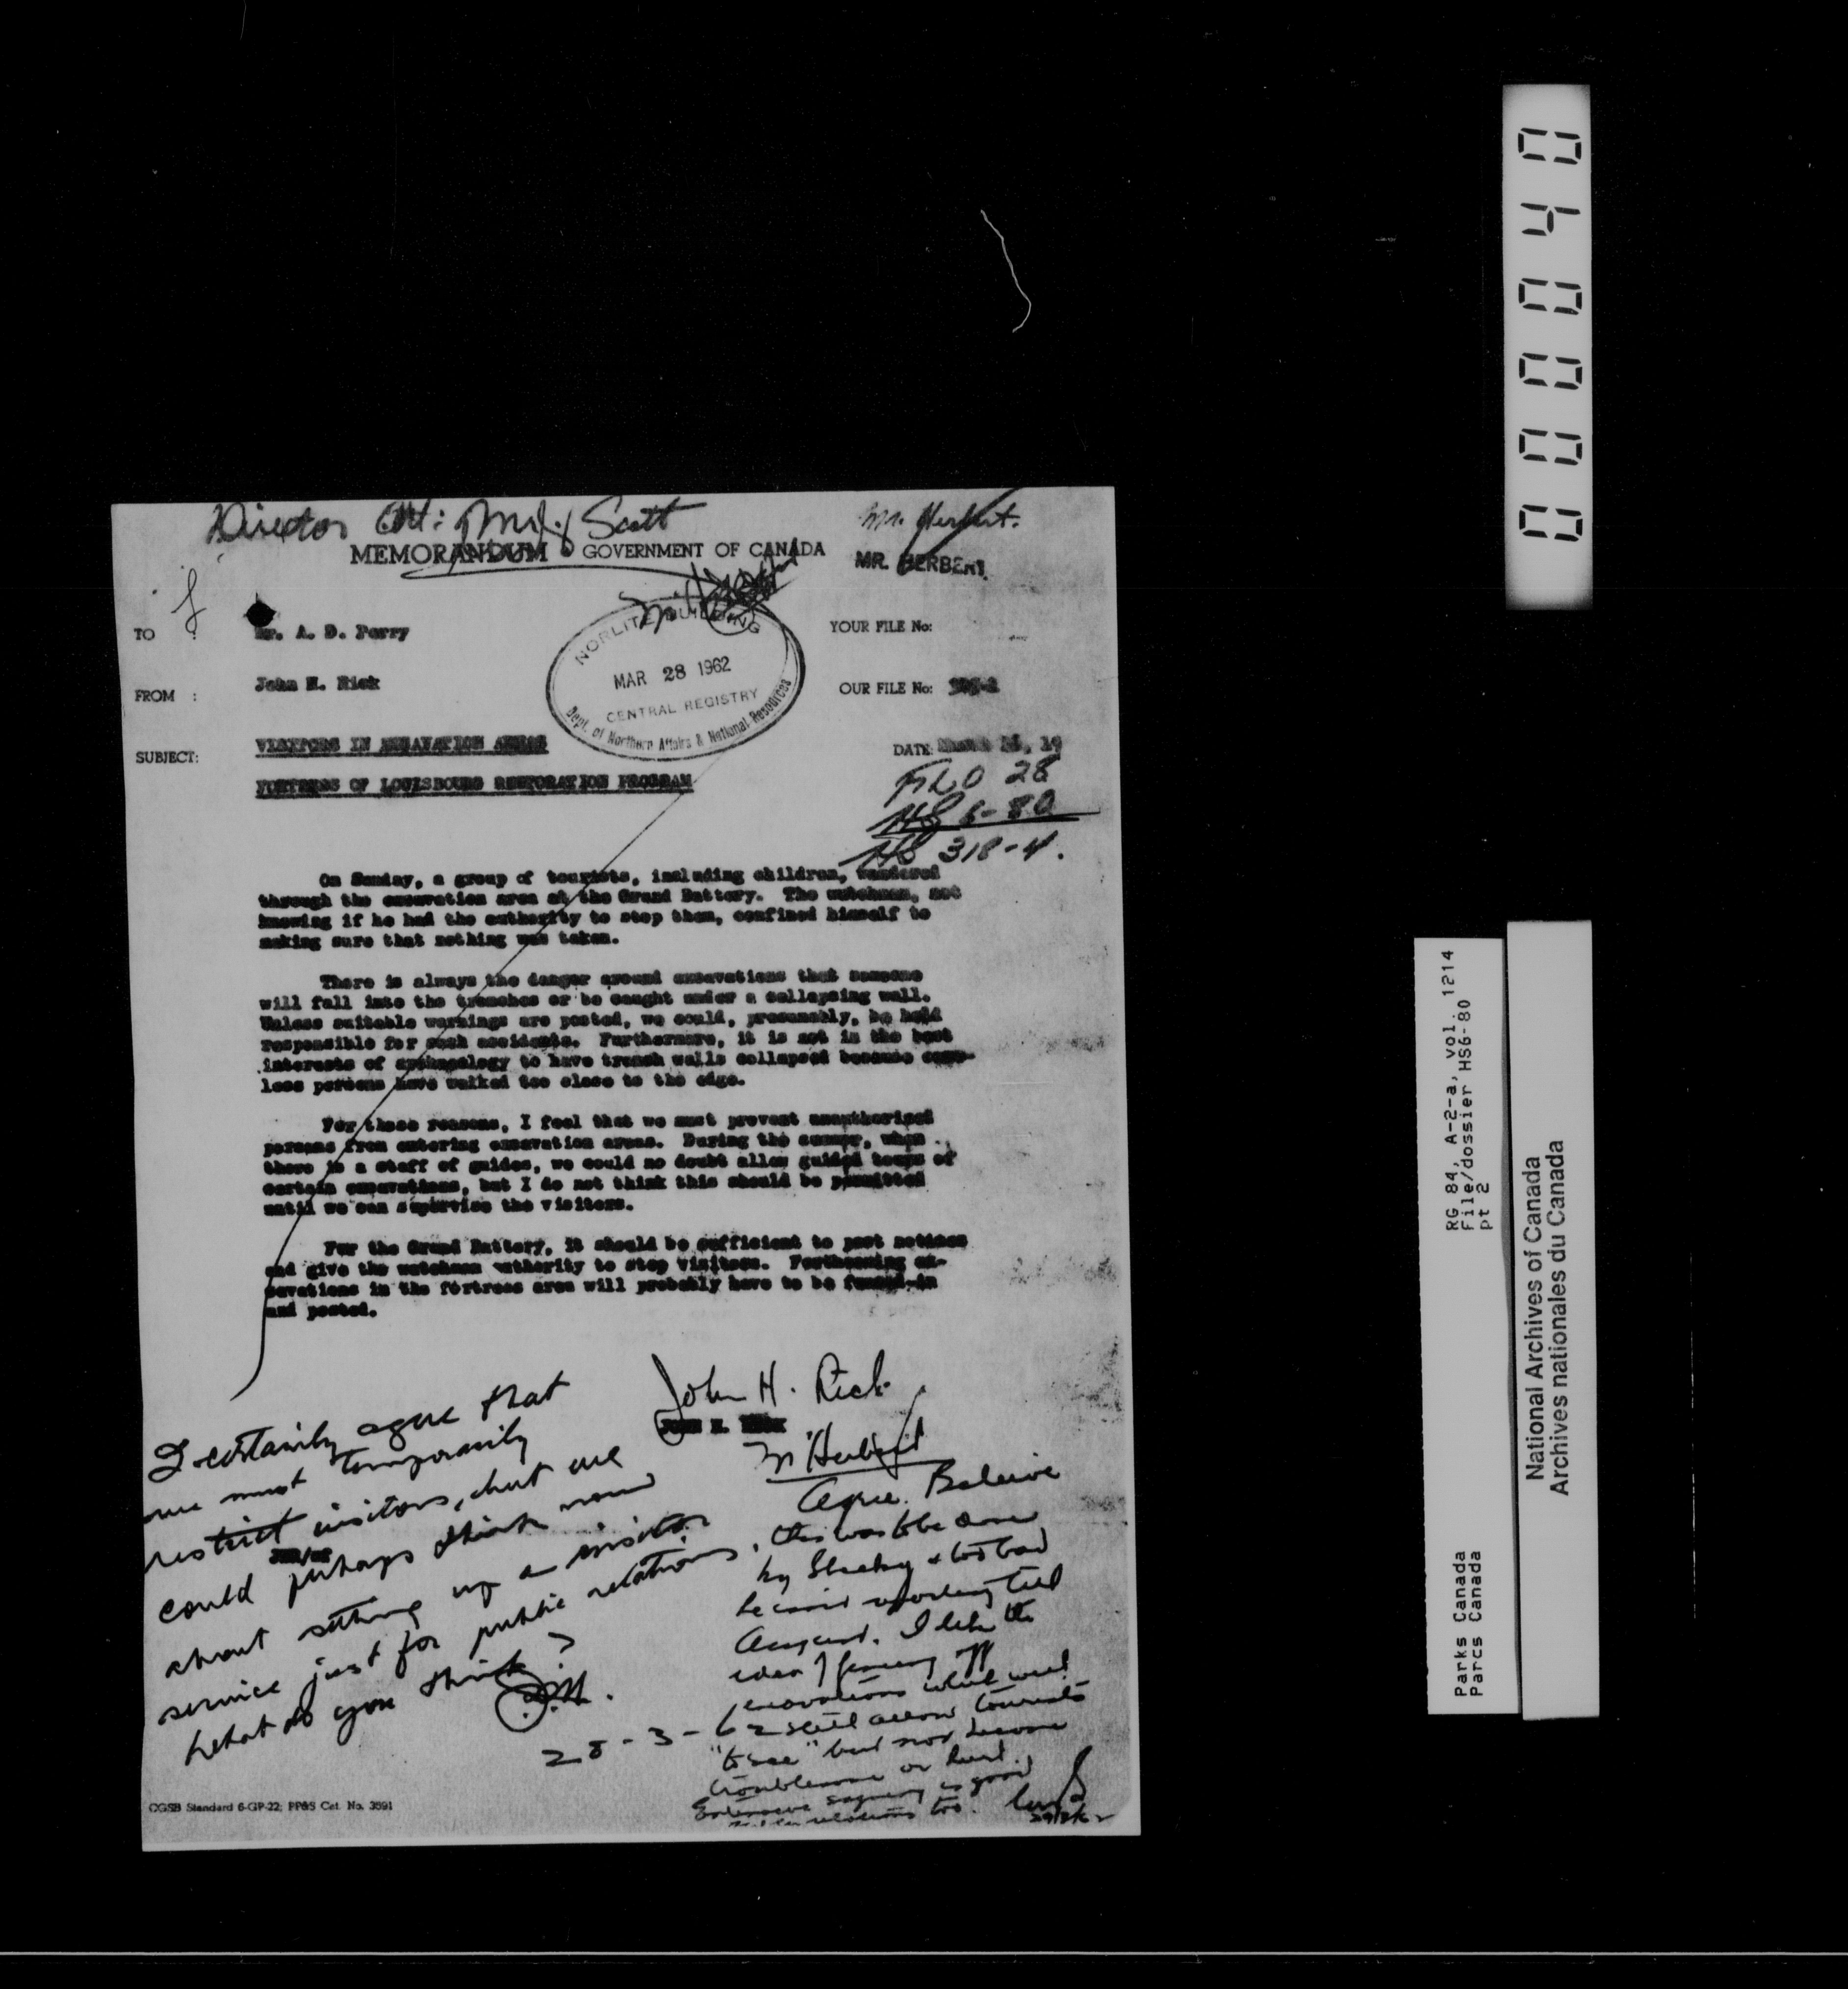 Director Att: Mr. Scott
Mr. Herbert.
MEMORANDUM GOVERNMENT OF CANADA
MR. HERBERT
TO : Mr. A. D. Perry
YOUR FILE No:
NORLITE BUILDING
MAR 28 1962
CENTRAL REGISTRY
Dept. of Northern Affairs & National Resources
FROM : John H. Rick
OUR FILE No:
SUBJECT: VISITORS IN EXCAVATION AREAS
DATE: March 26, 19
FORTRESS OF LOUISBOURG RESTORATION PROGRAM
FLO 28
HS 6-80
HS 318-4.
On Sunday, a group of tourists, including children, wandered
through the excavation area at the Grand Battery. The watchman, not
knowing if he had the authority to stop them, confined himself to
making sure that nothing was taken.
There is always the danger around excavations that someone
will fall into the trenches or be caught under a collapsing wall.
Unless suitable warnings are posted, we could, presumably, be held
responsible for such accidents. Furthermore, it is not in the best
interests of archaeology to have trench walls collapsed because care-
less persons have walked too close to the edge.
For these reasons, I feel that we must prevent unauthorized
persons from entering excavation areas. During the summer, when
there is a staff of guides, we could no doubt allow guided tours of
certain excavations, but I do not think this should be permitted
until we can supervise the visitors.
For the Grand Battery, it should be sufficient to post notices
and give the watchman authority to stop visitors. Forthcoming ex-
cavations in the fortress area will probably have to be fenced-in
and posted.
John H. Rick
JOHN H. RICK
I certainly agree that
we must temporarily
restrict visitors, but we
could perhaps think now
about setting up a visitor
service just for public relations.
What do you think?
28-3-62
Mr Herbert
Agree. Believe
this was to be done
by & too bad
he isn't working till
August. I like the
idea of fencing off
excavations which will
still allow tourists
"to see" but not become
troublesome or hurt.
Extensive signing is good
relations too.
29/3/62
CGSB Standard 6-GP-22; PP&S Cat. No. 3591
000040
RG 84, A-2-a, vol. 1214
File/dossier HS6-80
pt 2
Parks Canada
Parcs Canada
National Archives of Canada
Archives nationales du Canada